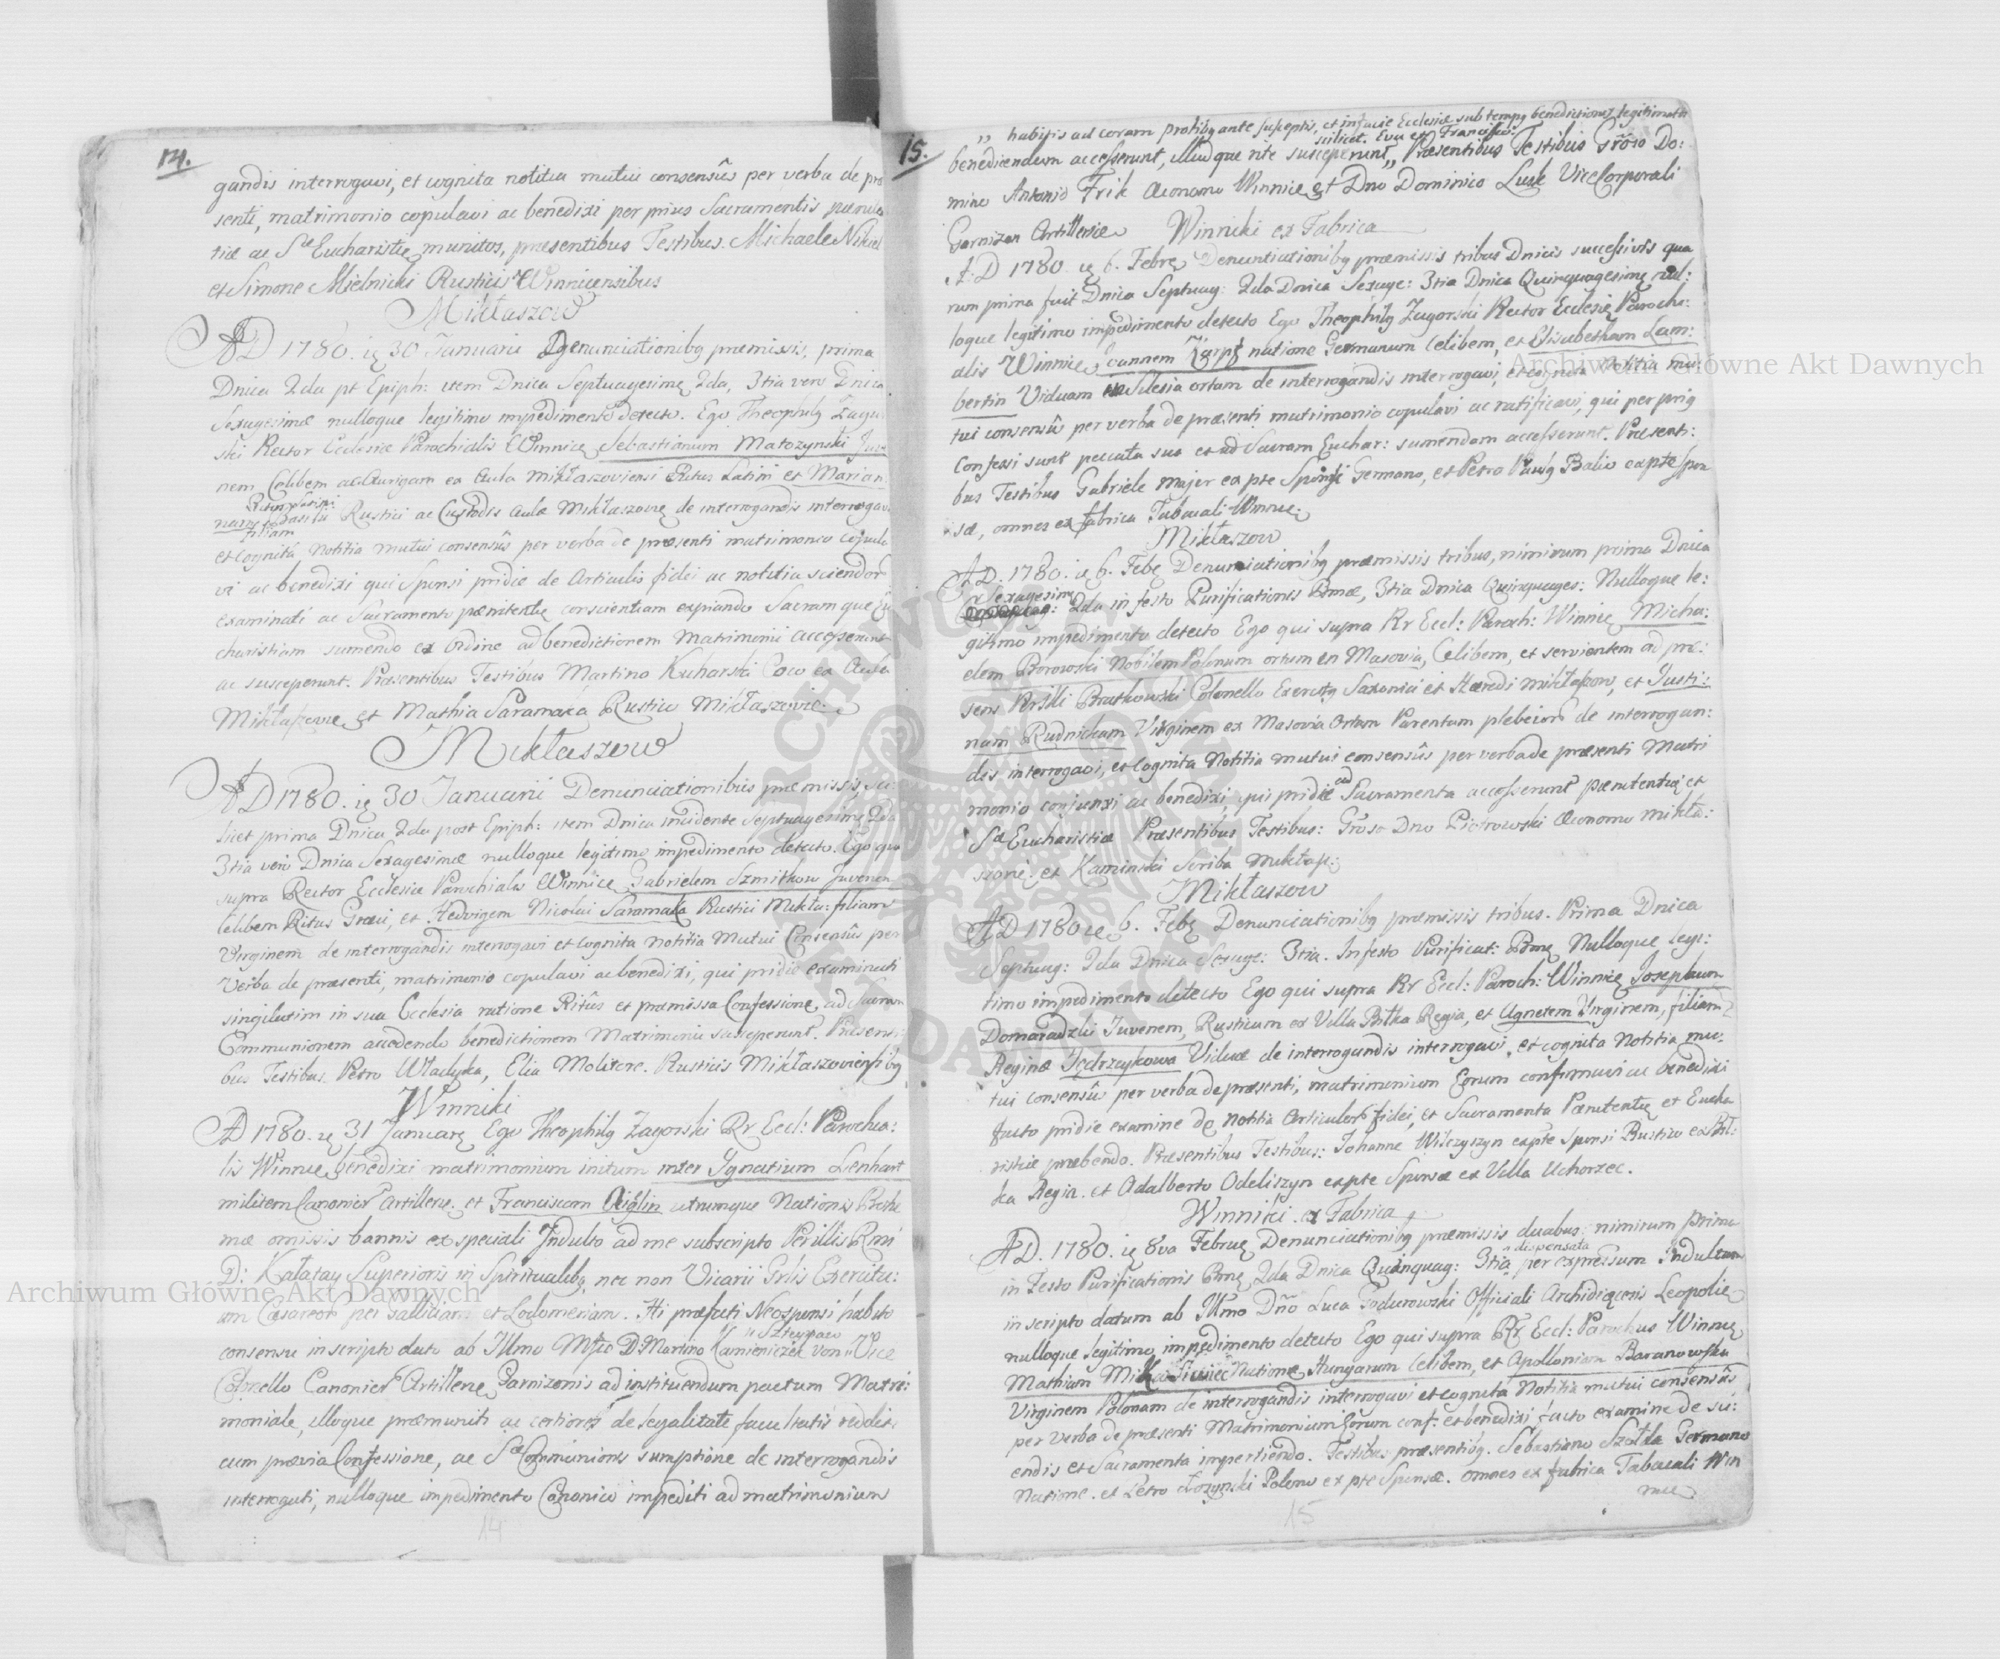 14.
gandis interrogavi, et cognita notitia mutui consensûs per verba de præ
senti, matrimonio copulavi ac benedixi per prius Sacramentis pænite
tiæ ac Sæ Eucharistię munitos, præsentibus Testibus. Michaele
et Simone Mielnicki Rusticis Winnicensibus
Mikłaszow
AD 1780. ię 30 Januarii Denunciationibq præmissis, prima
Dnica 2da pt Epiph: item Dnica Septuagesimę 2da, 3tia vero Dnica
Sexagesimæ nulloque legitimo impedimento detecto. Ego Theophilq Zagor
ski Rector Ecclesiæ Parochialis Winnicę Sebastianum Matozynski Juve
nem Cælibem ac Aurigam ex Aula Mikłaszoviensi Ritus Latini et Marian
nam Basilii Rustici ac Custodis Aulæ Mikłaszovię de interrogandis interrogavi
filiam
et Cognitâ Notitia mutui consensûs per verba de præsenti matrimonio copula
vi ac benedixi qui Sponsi pridie de Articulis fidei ac notitia sciendor
examinati ac Sacramento pænitentię conscientiam expiando Sacram que Eu
charistiam sumendo ex Ordine ad benedictionem Matrimonii accesserunt
ac susceperunt. Præsentibus Testibus Martino Kucharski Coco ex Aula
Mikłaszovię et Mathia Saramaka Rustico Mikłaszovię.
Mikłaszow
AD 1780. ię 30 Januarii Denunciationibus præmissis, sci:
licet prima Dnica 2da post Epiph: item Dnica incidente Septuagesimę 2da
3tia vero Dnica Sexagesimæ nulloque legitimo impedimento detecto. Ego quo
supra Rector Ecclesiæ Parochialis Winnicę Gabrielem Szmitkow Juvenem
Celibem Ritus Græci, et Hedvigem Nicolai Saramaka Rustici Mikła: filiam
Virginem de interrogandis interrogavi et Cognita Notitia Mutui Consensûs per
Verba de præsenti, matrimonio copulavi ac benedixi, qui pridie examinati
singilatim in sua Ecclesia ratione Ritûs et præmissa Confessione, ad Sacram
Communionem accedendo benedictionem Matrimonii susceperunt. Præsenti:
bus Testibus Petro Władyka, Elia Molitore. Rusticis Mikłaszoviensibq
Winniki
AD 1780. ię 31 Januarę Ego Theophilq Zagorski Rr Eccl: Parochia:
lis Winnicę benedixi matrimonium initum inter Ignatium Lenhart
militem Canonier Artillerię. et Franciscam utrumque Nationis Bohe
mæ omissis bannis ex speciali Indulto ad me subscripto Perillis Rmi
D: Kalatay Superioris in Spiritualibq nec non Vicarii Grlis Exercitu:
um Cæsareor per Galliciam et Lodomeriam. Hi præfati Neosponsi habito
consensu in scripto dato ab Illmo Mfco D: Martino Kamieniczek von Vice
Colonello Canonier Artillerię Garnizonis ad instituendum pactum Matri:
moniale, illoque præmuniti ac certiores de legalitate facultatis redditi
cum prævia Confessione, ac Sæ Communionis sumptione de interrogandis
interrogati, nulloque impedimento Canonico impediti ad matrimonium
15.
habitis ad coram probibq ante susceptis, et in facie Ecclesiæ sub tempq benedictionis legitimate
scilicet. Eva et Francisco:
benediendum accesserunt, illudque rite susceperunt Præsentibus Testibus Groso Do:
mino Antonio Frik Œconomo Winnicę et Dno Dominico Lusk ViceCorporali
Garnizon Artillerię
Winniki ex Fabrica
A. D 1780. ię 6. Febrę Denuntiationibq præmissis tribus Dnicis successivis qua
rum prima fuit Dnica Septuag: 2da Dnica Sexage: 3tia Dnica Quinquagesimę nul:
loque legitimo impedimento detecto Ego Theophilq Zagorski Rector Ecclesię Parochi:
alis Winnicę natione Germanum Celibem, et Elisabetham Lam:
bertin Viduam Silesia ortam de interrogandis interrogavi, et cognita Notitia mu:
tui consensûs per verba de præsenti matrimonio copulavi ac ratificavi, qui per priq
Confessi sunt peccata sua et ad Sacram Euchar: sumendam accesserunt. Præsenti:
bus Testibus Gabriele Majer ex pte Sponsi Germano, et Petro Balio ex pte Spon
sæ, omnes ex fabrica Tabacali Winnic:
Mikłaszow
AD. 1780. ię 6. Febę Denunciationibq præmissis tribus, nimirum prima Dnica
Sexagesimę
2da in festo Purificationis Bmæ, 3tia Dnica Quinquages: Nulloque le:
gitimo impedimento detecto Ego qui supra Rr Eccl: Paroch: Winnicę Micha:
elem Borowski Nobilem Polonum ortum ex Masovia, Celibem, et servientem ad præ:
sens Prilli Bratkowski Colonello Exercitq Saxonici et Hæredi Mikłaszow, et Justi:
nam Rudnickam Virginem ex Masovia Ortam Parentum plebeior de interrogan:
dis interrogavi, et Cognita Notitia mutui consensûs per verba de præsenti Matri
monio conjunxi ac benedixi, qui pridie ad Sacramenta accesserunt pænitentiæ et
Sæ Eucharistiæ Præsentibus Testibus: Groso Dno Piotrowski Œconomo Mikła:
szovię. et Kaminski Scriba Mikłasz:
Mikłaszow
AD 1780 ię 6. Febę Denunciationibq præmissis tribus. Prima Dnica
Septuag: 2da Dnica Sexage: 3tia. In festo Purificat: Bmę Nulloque legi:
timo impedimento detecto Ego qui supra Rr Eccl: Paroch: Winnicę Josephum
Domaradzki Juvenem, Rusticum ex Villa Biłka Regia, et Agnetem Virginem, filiam
Reginæ Jędrzeykowa Viduæ de interrogandis interrogavi, et cognita Notitia mu:
tui consensûs per verba de præsenti, matrimonium Eorum confirmavi ac benedixi
facto pridie examine de Notitia Articulor fidei, et Sacramenta Pænitentię et Eucha
ristiæ præbendo. Præsentibus Testibus: Johanne Wilczyszyn ex pte Sponsi Rustico ex Bił:
ka Regia. et Adalberto Odeliszyn ex pte Sponsæ ex Villa Uchorzec.
Winniki. ex Fabrica
AD. 1780. ię 8va Februę Denunciationibq præmissis duabus: nimirum prima
in Festo Purificationis Bmę 2da Dnica Quinquag: 3tia dispensata per expressum Indultum
in scripto datum ab Illmo Dño Luca Godurowski Officiali Archidiæcesis Leopolię
nulloque legitimo impedimento detecto Ego qui supra Rr Eccl: Parochus Winnicę
Mathiam Natione Hungarum Celibem, et Apolloniam Baranowska
Virginem Polonam de interrogandis interrogavi et Cognitâ Notitia mutui consensûs
per verba de præsenti Matrimonium Eorum conf: et benedixi, facto examine de sci:
endis et Sacramenta impertiendo. Testibus præsentibq. Sebastiano Szolda Germano
Natione. et Petro Łozynski Polono ex pte Sponsæ. omnes ex fabrica Tabacali Win
nicę
14
15
Archiwum Główne Akt Dawnych
Archiwum Główne Akt Dawnych
ARCHIWUM GŁÓWNE AKT DAWNYCH